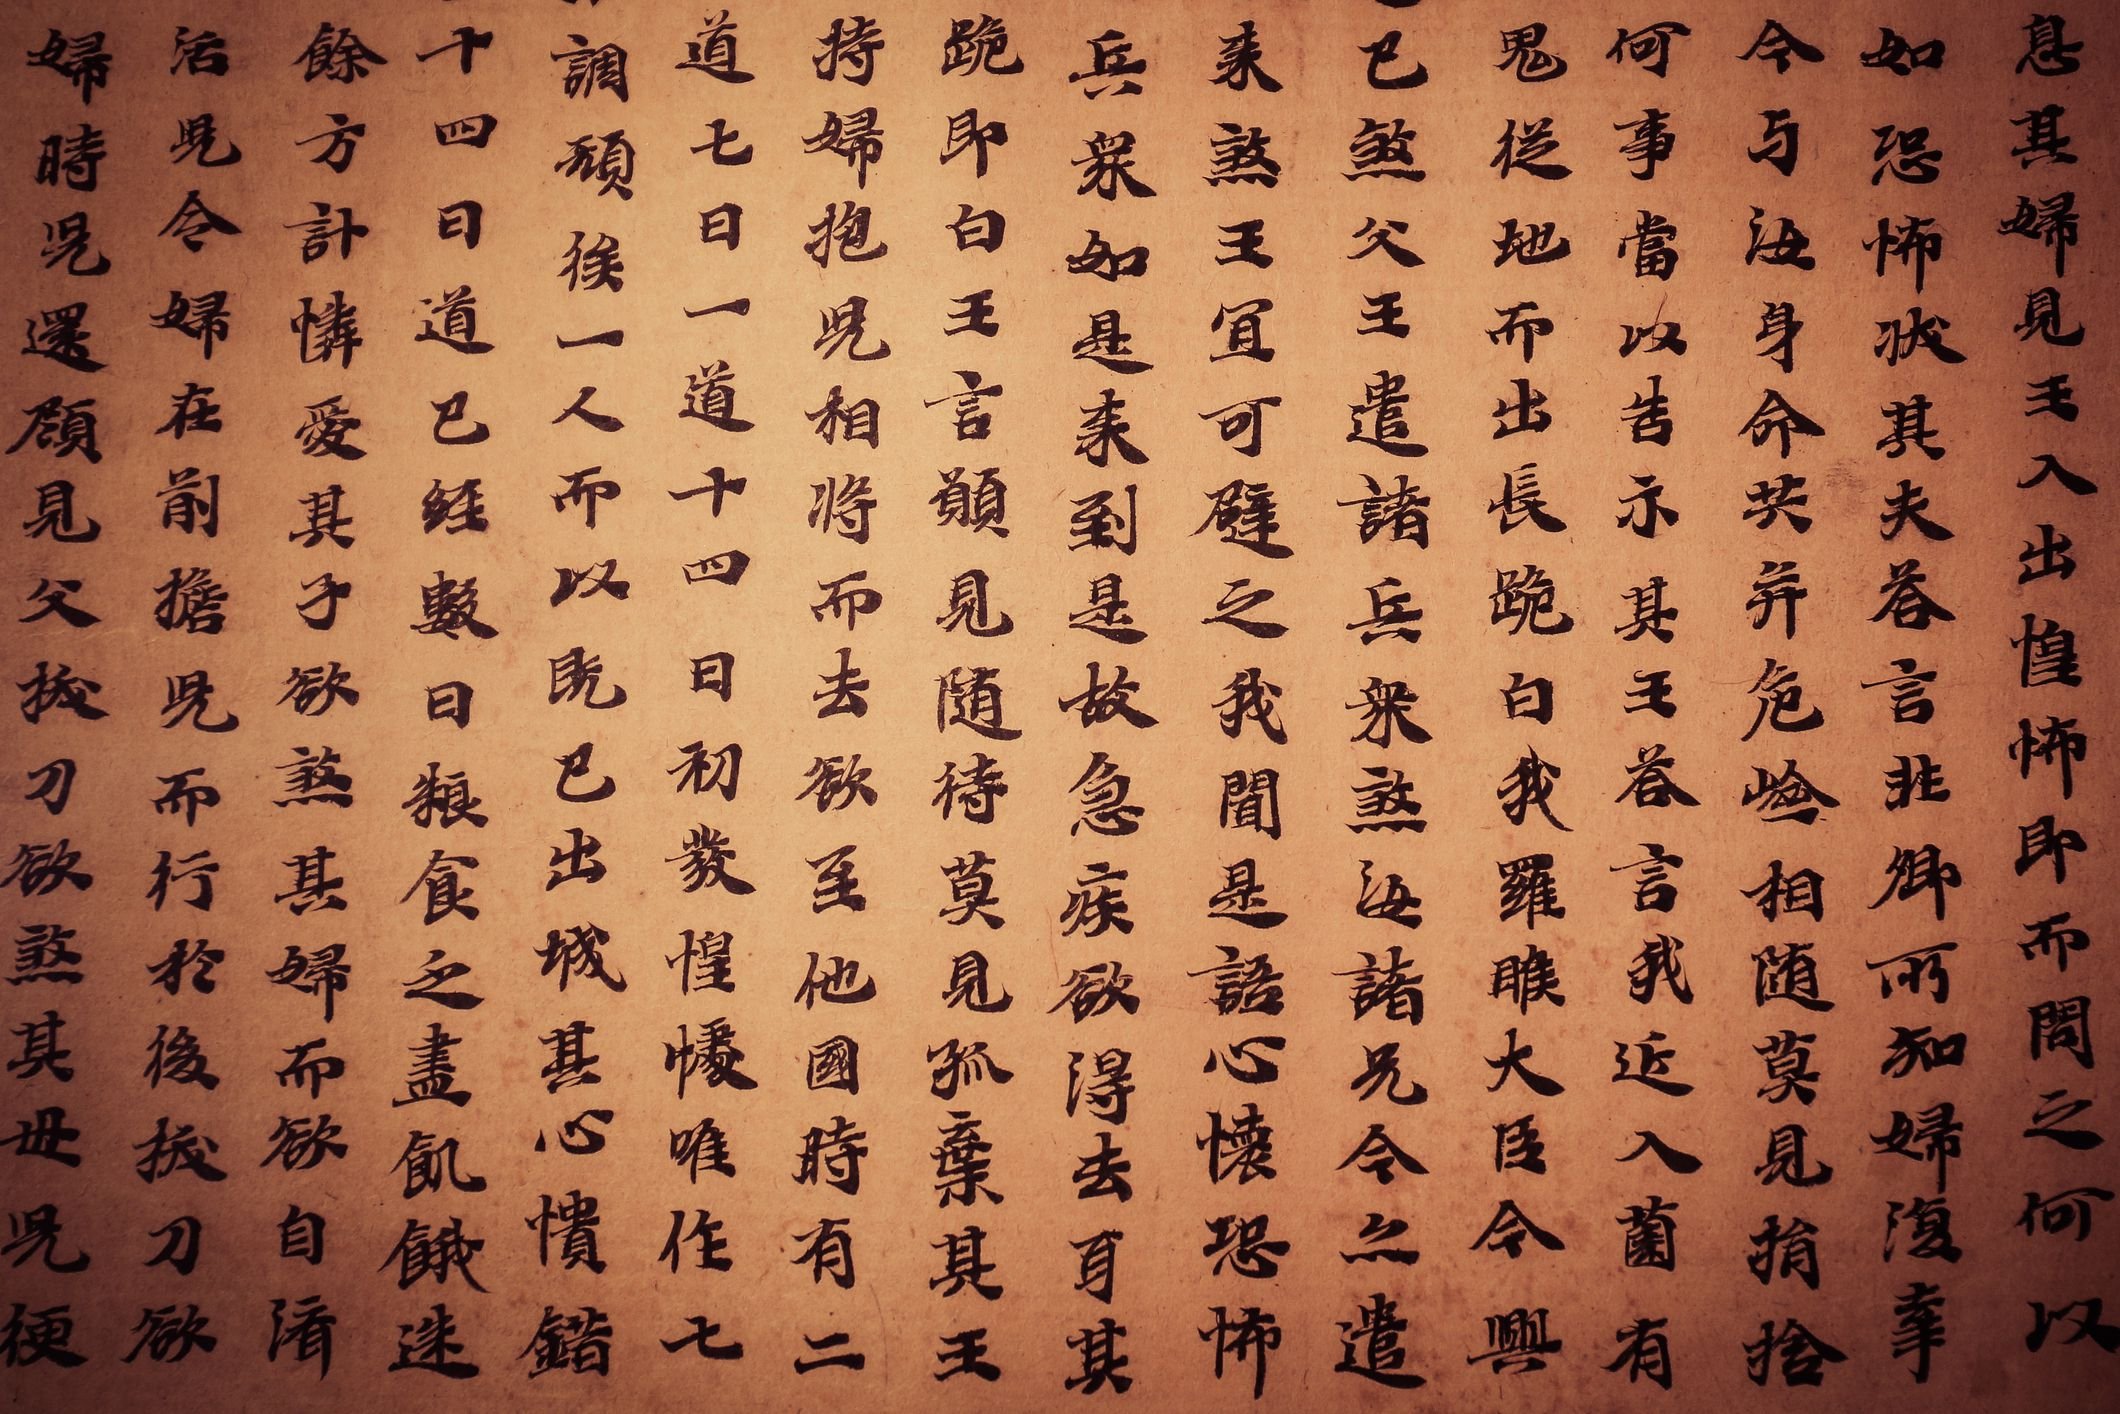 息其婦見王入出惶怖即而問之何以
如恐怖状其夫荅言非卿所知婦復牽
今与汝身命共并危嶮相随莫見捐捨
何事當以告示其王荅言我近入薗有
鬼從地而出長跪白我羅睺大臣今興
已煞父王遣諸兵衆煞汝諸兄今亦遣
来煞王宜可避之我聞是語心懐恐怖
兵衆如是来到是故急疾欲得去耳其
跪即白王言願見随待莫見孤棄其王
持婦抱兒相将而去欲至他國時有二
道七日一道十四日初發惶懅唯作七
調頓俟一人而以既已出城其心憒錯
十四日道已經數日粮食乏盡飢餓迷
餘方計憐愛其子欲煞其婦而欲自濟
活兒令婦在前擔兒而行於後拔刀欲
婦時兒還顧見父拔刀欲煞其母兒便